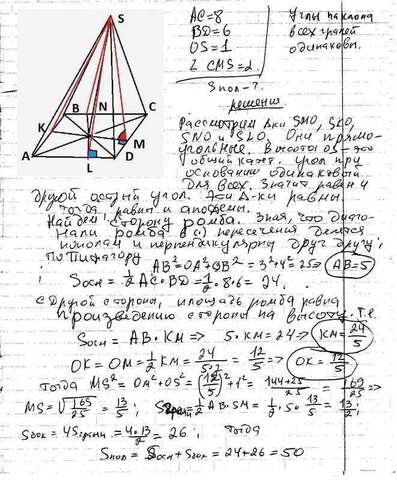 S
B
N
C
K
M
A
L
D
AC=8
BD=6
OS=1
∠ CMS=α
Углы наклона
всех граней
одинаковы.
Sпол-?
решение
Рассмотрим Δки SMO, SLO,
SNO и SKO. Они прямо-
угольные. Высота OS - это
общий катет. Угол при
основании одинаковый
для всех. Значит равен и
другой острый угол. Эти Δ-ки равны.
тогда равны и апофемы.
Найдем сторону ромба. Зная, что диаго-
нали ромба в (·) пересечения делятся
пополам и перпендикулярны друг другу,
по Пифагору AB²=OA²+OB²=3²+4²=25⇒ AB=5
Sосн=½ AC·BD=½·8·6=24.
С другой стороны, площадь ромба равна
произведению стороны на высоту, т.е.
Sосн=AB·KM ⇒ 5·KM=24 ⇒ KM=24/5
OK=OM=½KM=24/(5·2)=12/5 ⇒ OK=12/5
тогда MS²=OM²+OS²=(12/5)²+1²=(144+25)/25=169/25 ⇒
MS=√(169/25)=13/5; Sграни=½AB·SM=½·5·13/5=13/2;
Sбок=4Sграни=4·13/2=26; тогда
Sпол=Sосн+Sбок=24+26=50